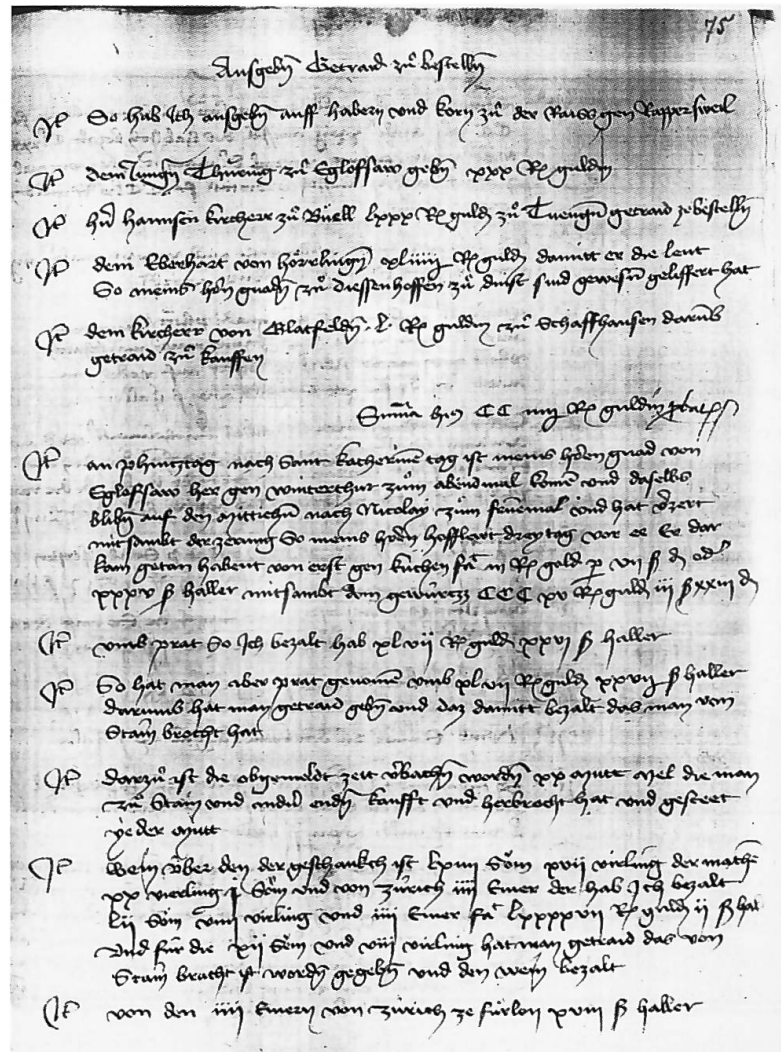 75
Ausgebn Getraid zů bestelln
It So hab Ich ausgebn auff habern vnd korn zů der Raiss gen Rappersweil
It dem Jungn Thüring zů Egloffsaw gebn xxx R guldin
It hern Hannsen kircherr zů Büell lxxx R guldn zů Tuengen getraid ze bestelln
It dem Eberhart von xliiii R guldn damitt er die leut
So meins hern gnadn zů diessenhoffen zů dinst sind gewesn geliffert hat
It dem kircherr von Glatfeldn l R guldin zů Schaffhausen darumb
getraid zů kauffen
Summa CC iiii R guldin
It an phintztag nach Sant kathermē tag ist meins hern gnad von
Egloffsaw her gen winterthur zům abendmal komē vnd daselbs
blibn auf den mittichn nach Nicolay zům vnd hat vzert
mitsambt der zerung So meins hern hoffleut drey tag vor ee Er dar
kam getan habent von erst gen kuchen fa iii R gold p vii ß d od
xxxv ß haller mitsambt dem gewürtzz CCC xv R guldn iii ß xxiii d
It vmb prat So Ich bezalt hab xlvii R guldn xxvi ß haller
It So hat man aber prat genomē vmb xlvii R guldn xxvii ß haller
darumb hat man getraid gebn vnd daz damitt bezalt das man vom
Stain brocht hat
It darzů ist die obgemeldt zeit vbachn wordn xx mutt mel die man
zů Stain vnd endn kaufft vnd herbrocht hat vnd gesteet
yeder mutt
It wein vber den der geschankch ist lxiiii Söm xvii virling der mathē
xx vierling i Söm vnd von zürich iiii Emer der hab Ich bezalt
lii Söm viiii virling vnd iiii Emer fa lxxxxvii R guldn ii ß hal
vnd für die xii Söm vnd viii virling hat man getraid das von
Stain bracht ist wordn gegebn vnd den wein bezalt
It von den iiii Emern von zürich ze fürlon xviii ß haller